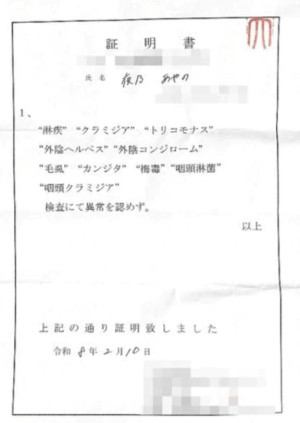 証明書
氏名 夜乃 あやの
1、
"淋疾" "クラミジア" "トリコモナス"
"外陰ヘルペス" "外陰コンジローム"
"毛虱" "カンジタ" "梅毒" "咽頭淋菌"
"咽頭クラミジア"
検査にて異常を認めず。
以上
上記の通り証明致しました
令和 8年2月10日